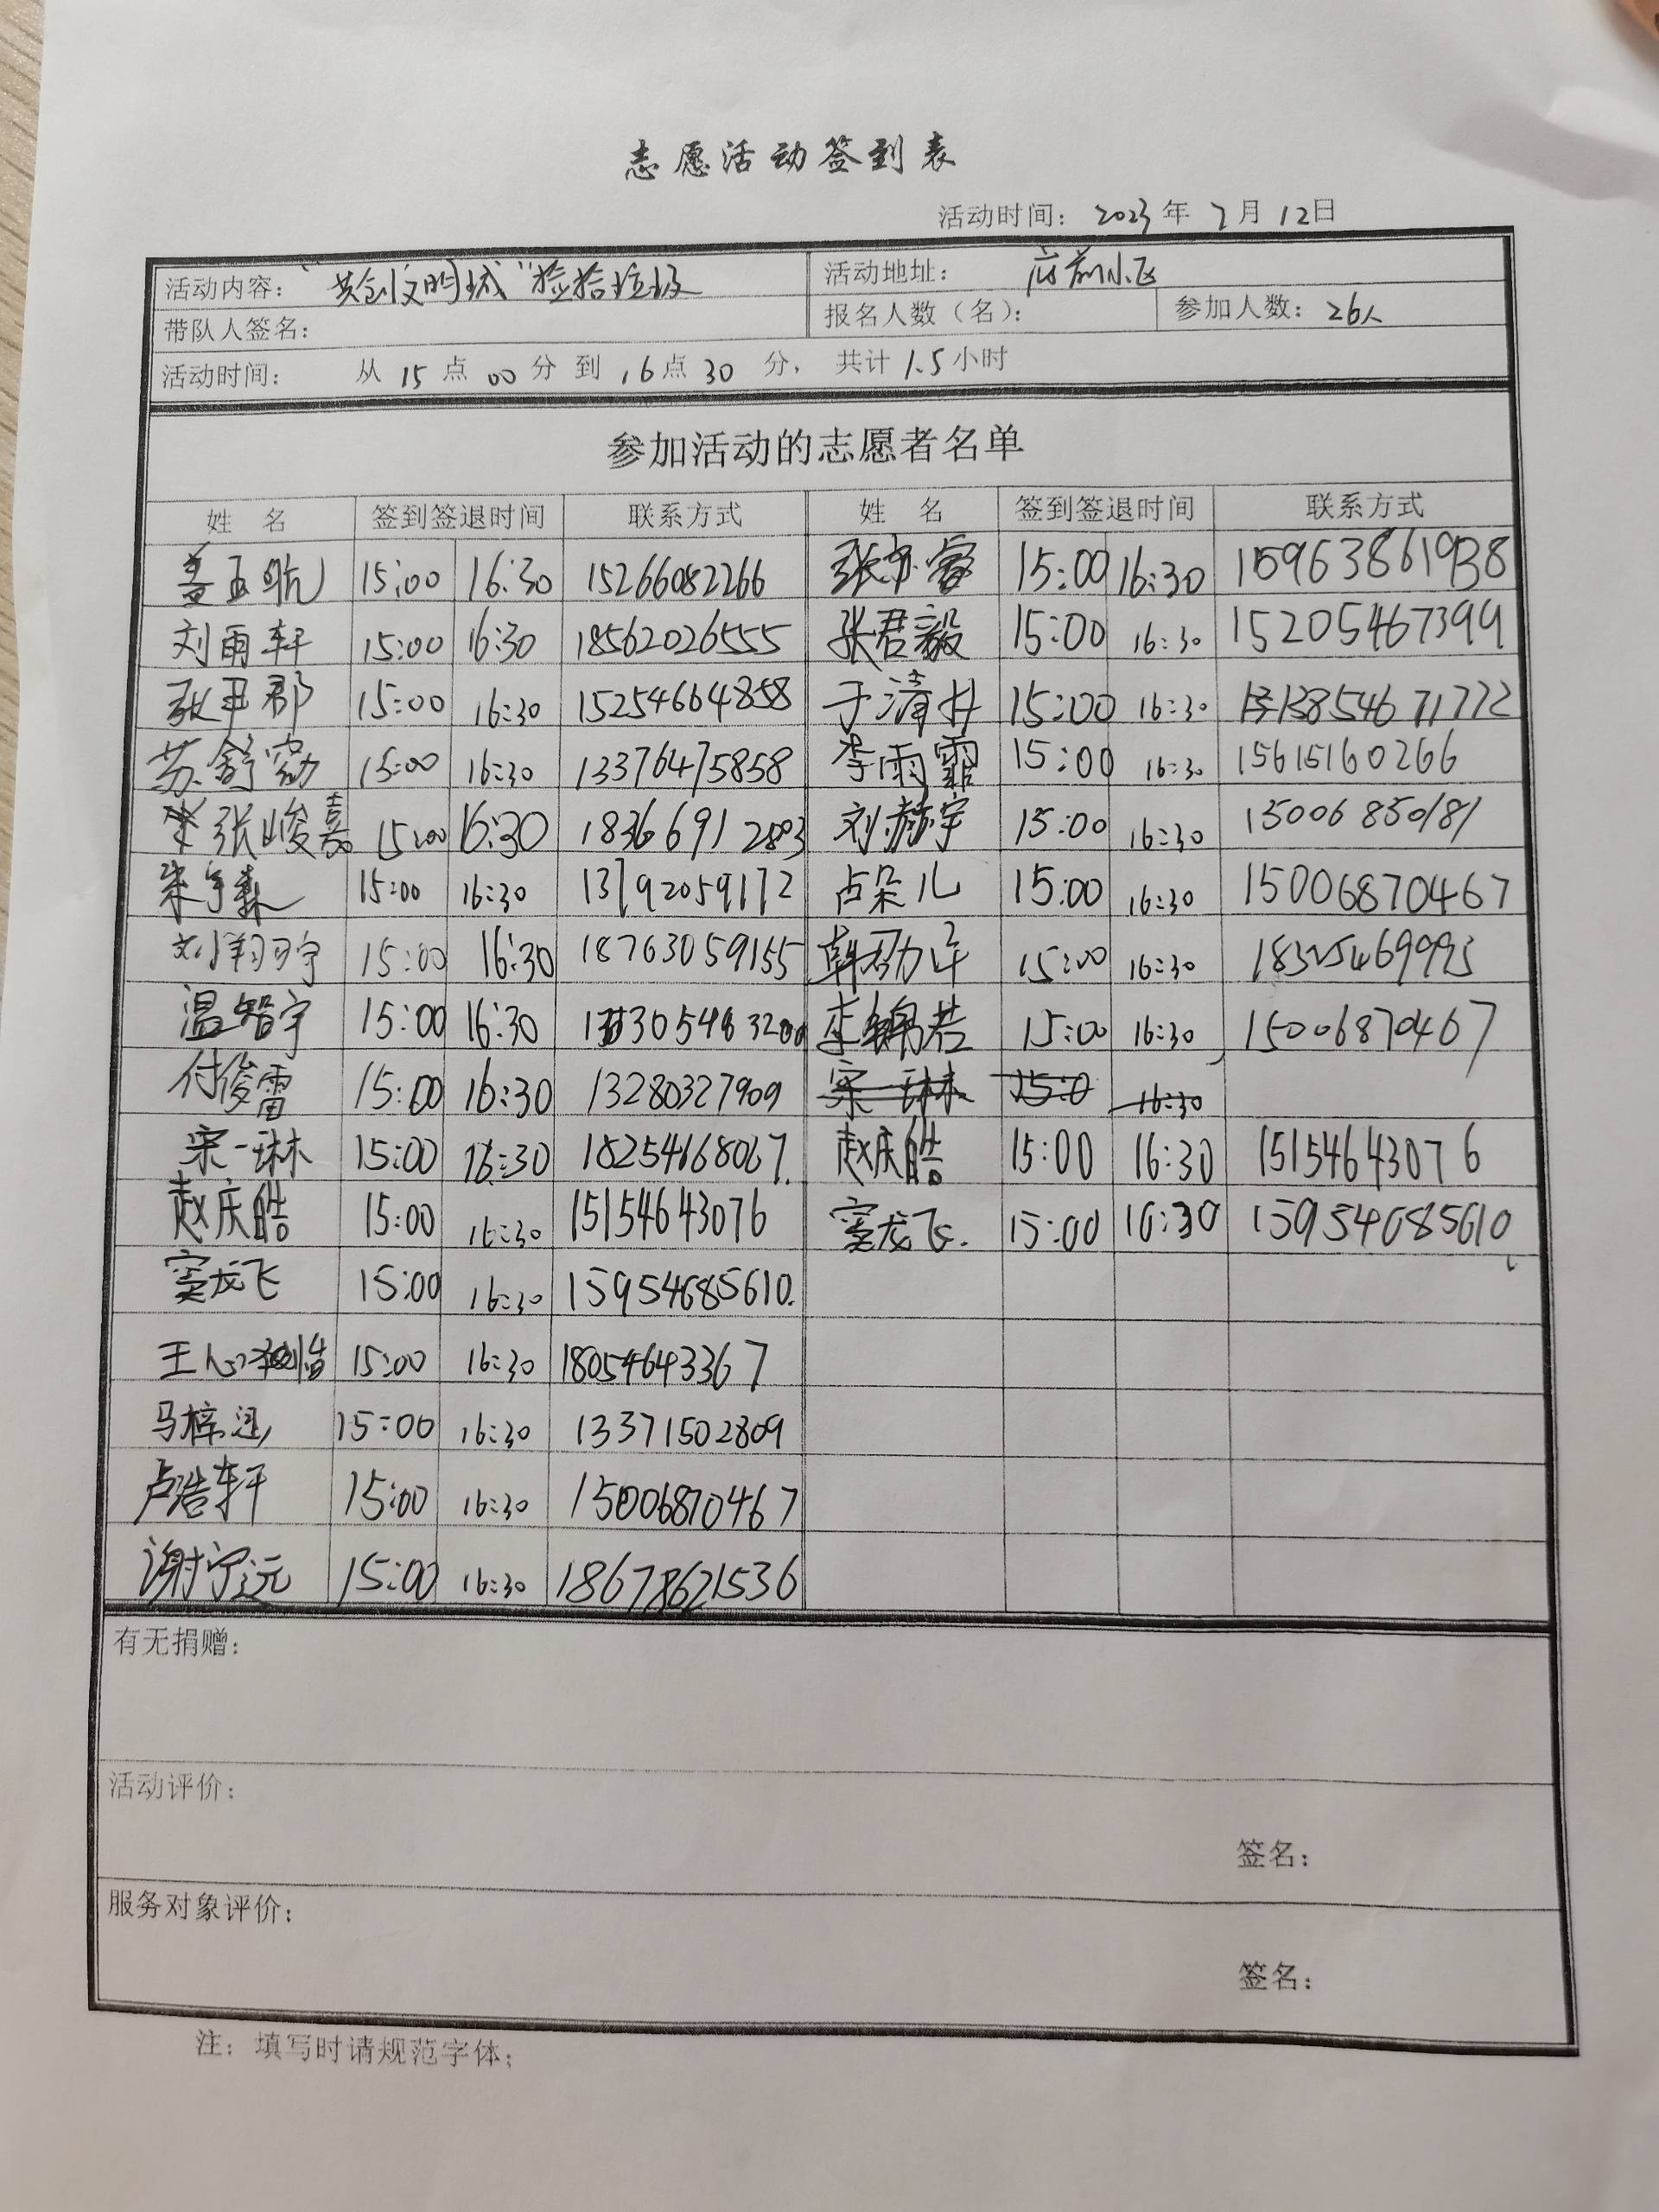 志愿活动签到表
活动时间：2023年2月12日
活动内容："共创文明城"捡拾垃圾 活动地址：府前小区
带队人签名： 报名人数（名）： 参加人数：26人
活动时间： 从15点00分到16点30分，共计1.5小时
参加活动的志愿者名单
姓 名 签到签退时间 联系方式 姓 名 签到签退时间 联系方式
盖玉航 15:00 16:30 15266082266 张 15:00 16:30 15963861938
刘雨轩 15:00 16:30 18562026555 张君毅 15:00 16:30 15205467399
15:00 16:30 15254664858 于清 15:00 16:30 13854671772
苏舒 15:00 16:30 13376475858 李雨霏 15:00 16:30 15615160266
张峻嘉 15:00 16:30 18366912893 刘赫宇 15:00 16:30 15006850181
宋宇森 15:00 16:30 13792059172 占朵儿 15:00 16:30 15006870467
刘翔宇 15:00 16:30 18763059155 韩 15:00 16:30
温智宇 15:00 16:30 李锦若 15:00 16:30 15006870467
付俊雷 15:00 16:30 13280327909 宋一琳 15:0 16:30
宋一琳 15:00 16:30 18254668067 赵庆皓 15:00 16:30 15154643076
赵庆皓 15:00 16:30 15154643076 窦龙飞. 15:00 16:30 15954685610
窦龙飞 15:00 16:30 15954685610.
王心怡 15:00 16:30 18054643367
马梓 15:00 16:30 13371502809
卢浩轩 15:00 16:30 15006870467
谢宁远 15:00 16:30 18678621536
有无捐赠：
活动评价：
签名：
服务对象评价：
签名：
注：填写时请规范字体；